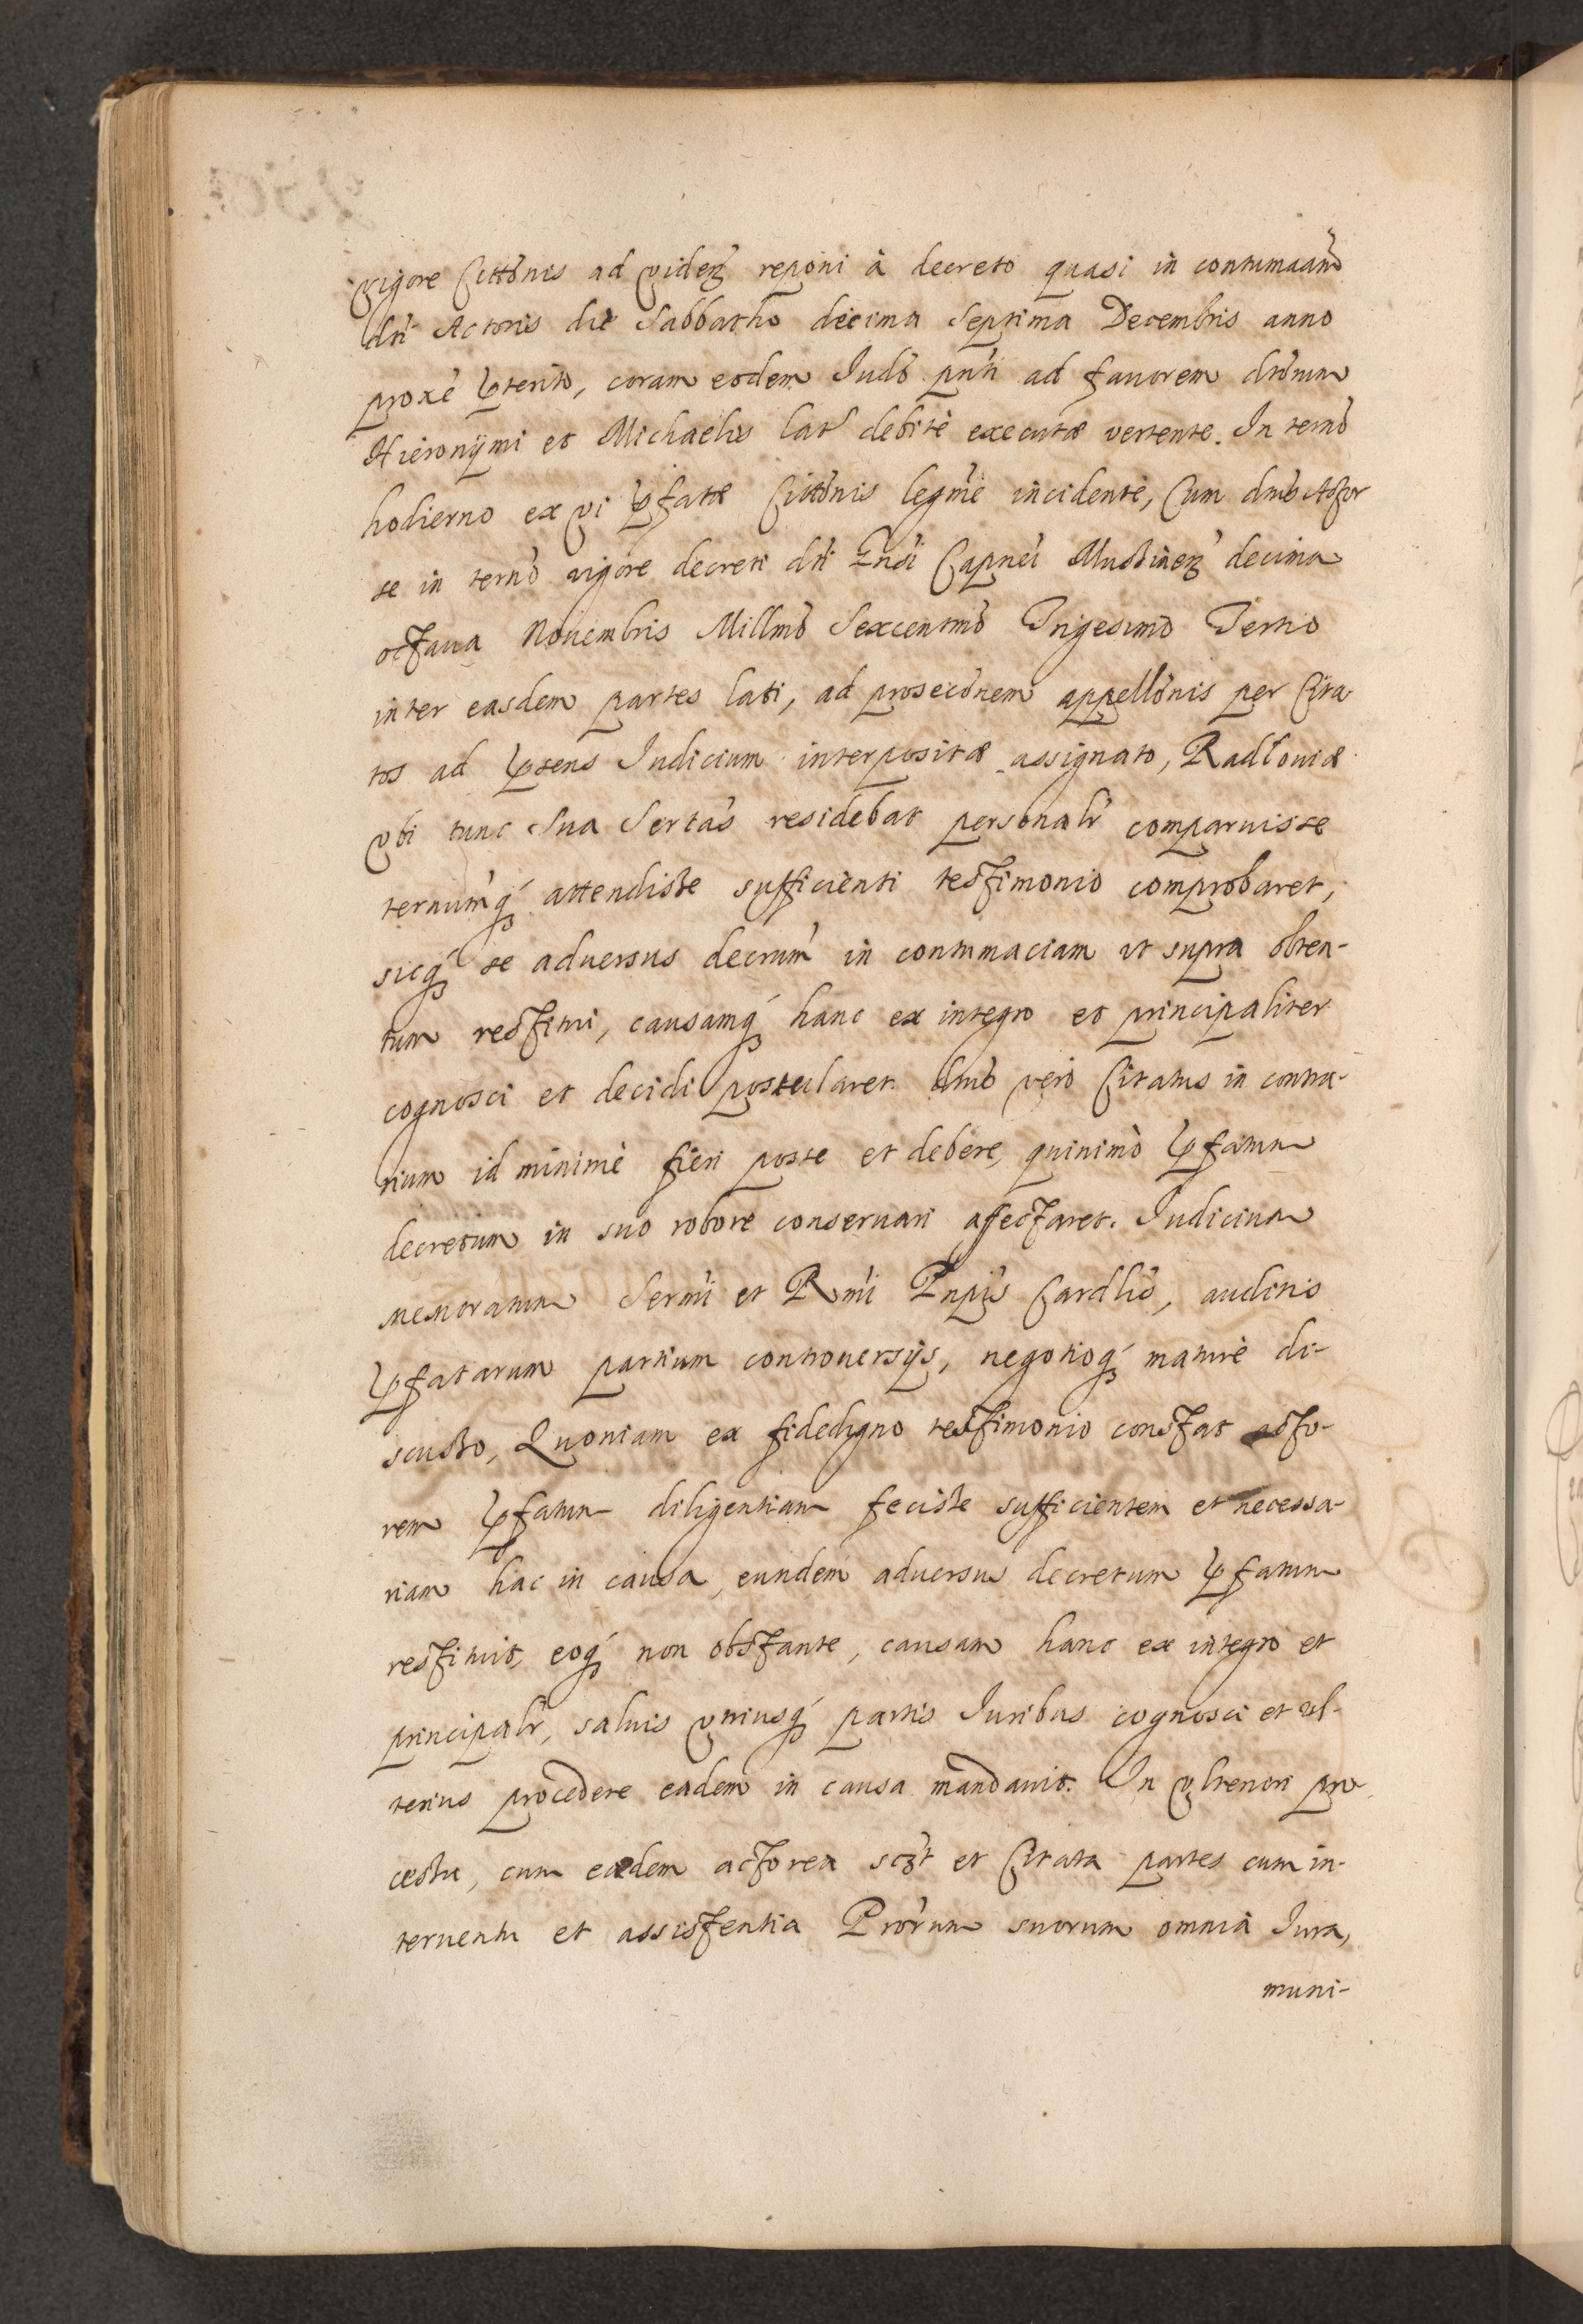 vigore Citt̃onis ad videnḋ reponi à decreto quasi in contumaciam̃
dñi Actoris die Sabbatho decima Septima Decembris anno
proxẽ p̃terito, coram eodem Judõ pñti ad favorem dñorum
Hieronÿmi et Michaelis lat̃ debitè executæ vertente. In termõ
hodierno ex vi p̃fatæ Citt̃onis legit̃me incidente, Cum dnũs Actor
se in termõ vigore decreti dñi Gñdi Capnei Muszinen̄ decima
octava Novembris Millmõ Sexcentmõ Trigesimo Tertio
inter easdem partes lati, ad prosecõnem appellõnis per Cita
tos ad p̃sens Judicium interpositæ assignato, Radloviæ
vbi tunc Sua Sertas̃ residebat personalr̃ comparuisse
terminum̃q́ attendisse sufficienti testimonio comprobaret,
sicq́ se adversus decretum̃ in contumaciam ut supra obten-
tum restitui, causamq́ hanc ex integro et principaliter
cognosci et decidi postularet. dnũs verò Citatus in contra-
rium id minimè fieri posse et debere, quinimò p̃fatum
decretum in suo robore conservari affectaret. Judicium
memoratum Sermi et Rmi Pnpis Cardlis, auditis
p̃fatarum partium controversijs, negotioq́ maturè di-
scusso, Quoniam ex fidedigno testimonio constat acto-
rem p̃fatum diligentiam fecisse sufficientem et necessa-
riam hac in causa, eundem adversus decretum p̃fatum
restituit, eoq́ non obstante, causam hanc ex integro et
principalr̃, salvis vtriusq́ partis Juribus cognosci et vl-
terius procedere eadem in causa mandavit. In vlteriori pro
cessu, cum eædem actorea sczt et Citata partes cum in-
terventu et assistentia Prorum suorum omnia Jura,
muni-